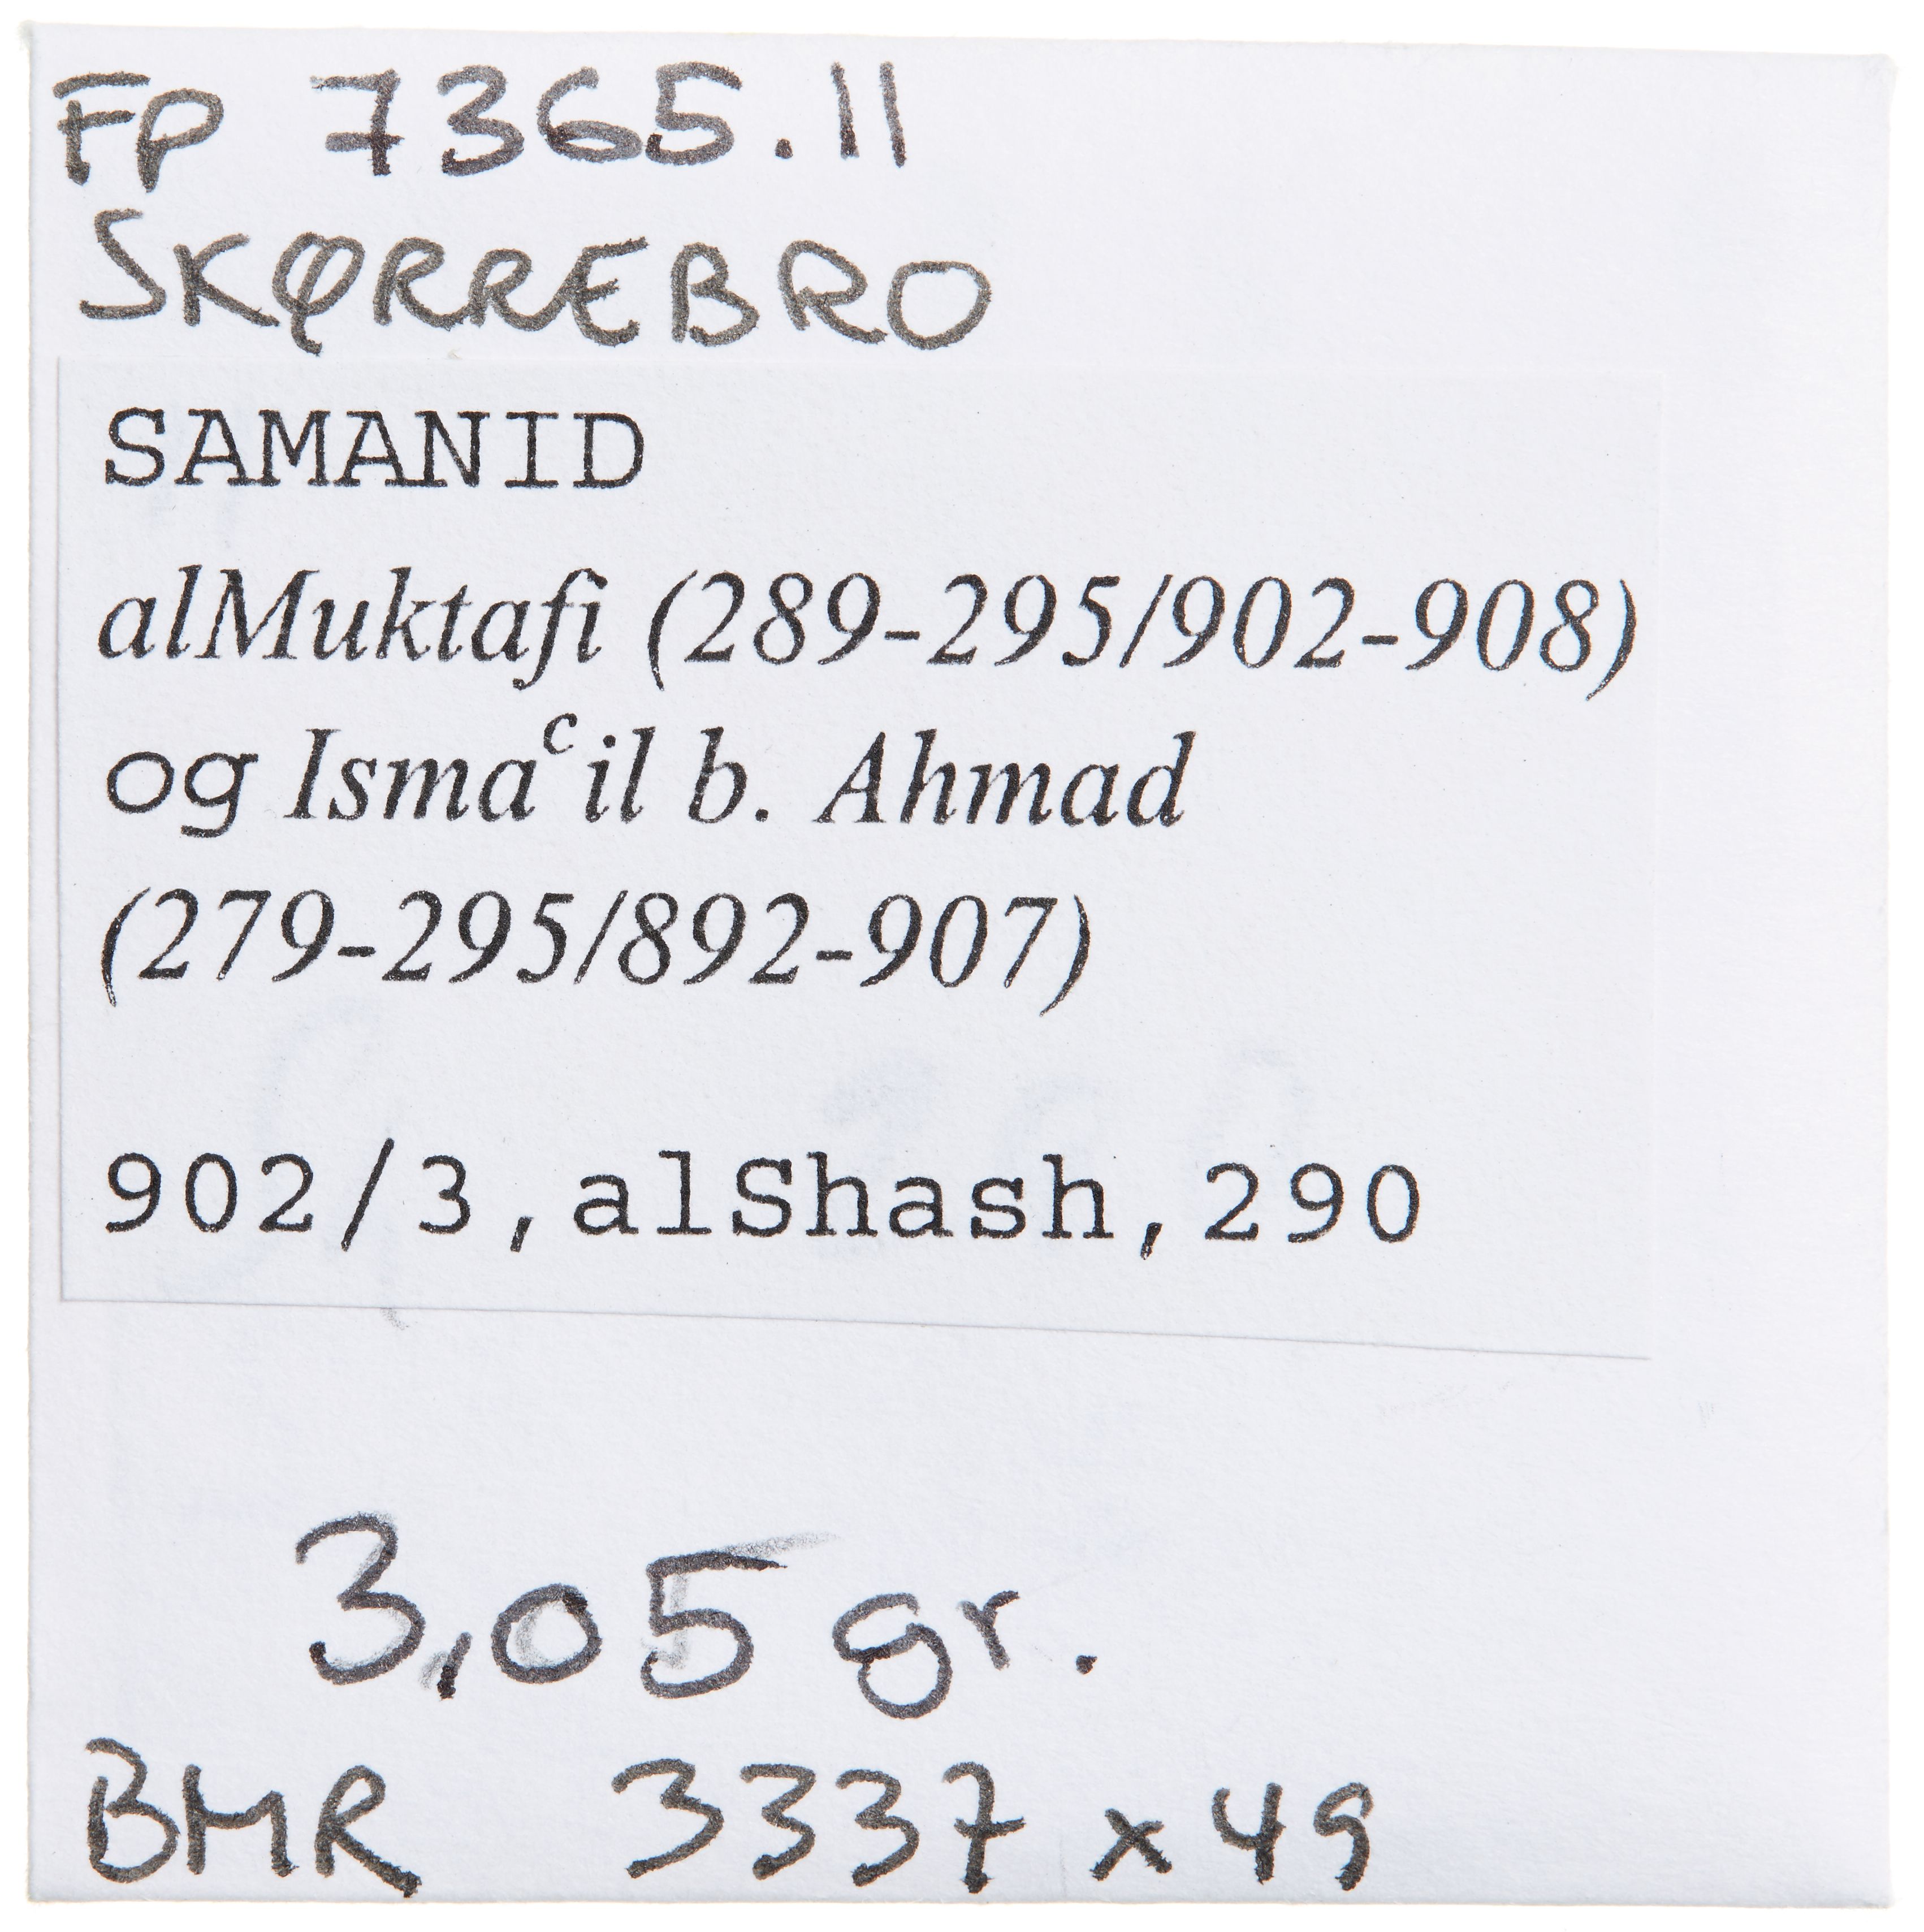 FP 7365.11
SKØRREBRO
SAMANID
alMuktafi (289-295/902-908)
og Ismaᶜil b. Ahmad
(279-295/892-907)
902/3, alShash, 290
3,05 gr.
BMR 3337 x 49